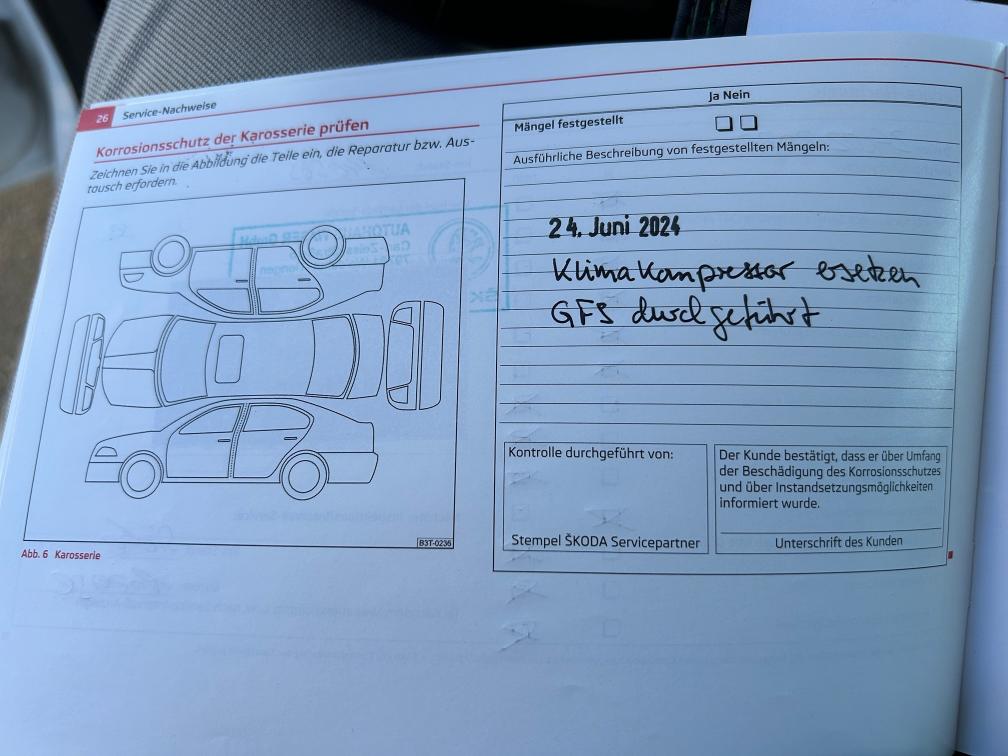 26 Service-Nachweise
Korrosionsschutz der Karosserie prüfen
Zeichnen Sie in die Abbildung die Teile ein, die Reparatur bzw. Aus-
tausch erfordern.
B3T-0236
Abb. 6 Karosserie
Ja Nein
Mängel festgestellt
Ausführliche Beschreibung von festgestellten Mängeln:
24. Juni 2024
Klimakompressor ersetzen
GFS durchgeführt
Kontrolle durchgeführt von:
Stempel ŠKODA Servicepartner
Der Kunde bestätigt, dass er über Umfang
der Beschädigung des Korrosionsschutzes
und über Instandsetzungsmöglichkeiten
informiert wurde.
Unterschrift des Kunden